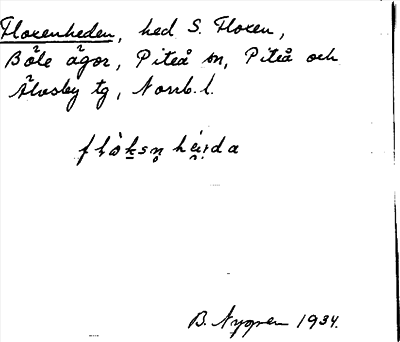 Floxenheden, hed S. Floxen,
Böle ägor, Piteå sn, Piteå och
Älvsby tg, Norrb. l.
fḷòk̠sn̥ héi̯ṛda
B. Nygren 1934.